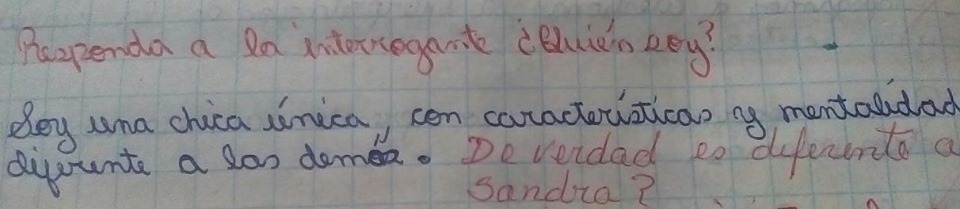 Responda a la interrogante ¿Quién soy?
Soy una chica única, con características y mentalidad
diferente a las demás. De verdad es diferente a
Sandra?